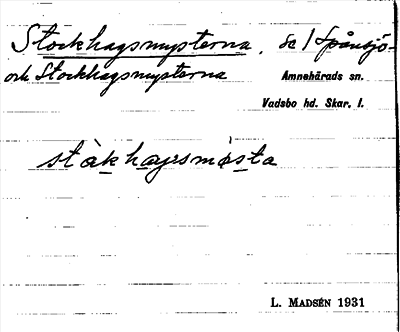 Stockhagsmysterna, se 1 Spånsjö-
och Stockhagsmysterna
Amnehärads sn.
Vadsbo hd. Skar. l.
L. MADSÉN 1931